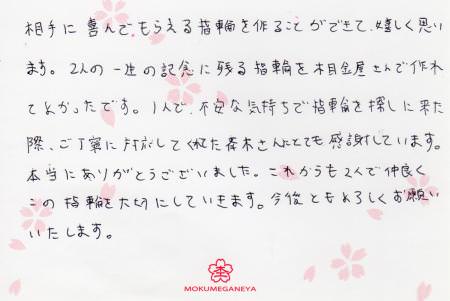 相手に喜んでもらえる指輪を作ることができて、嬉しく思い
ます。2人の一生の記念に残る指輪を杢目金屋さんで作れ
てよかったです。1人で、不安な気持ちで指輪を探しに来た
際、ご丁寧に対応してくれた森木さんにとても感謝しています。
本当にありがとうございました。これからも2人で仲良く
この指輪を大切にしていきます。今後ともよろしくお願い
いたします。
MOKUMEGANEYA